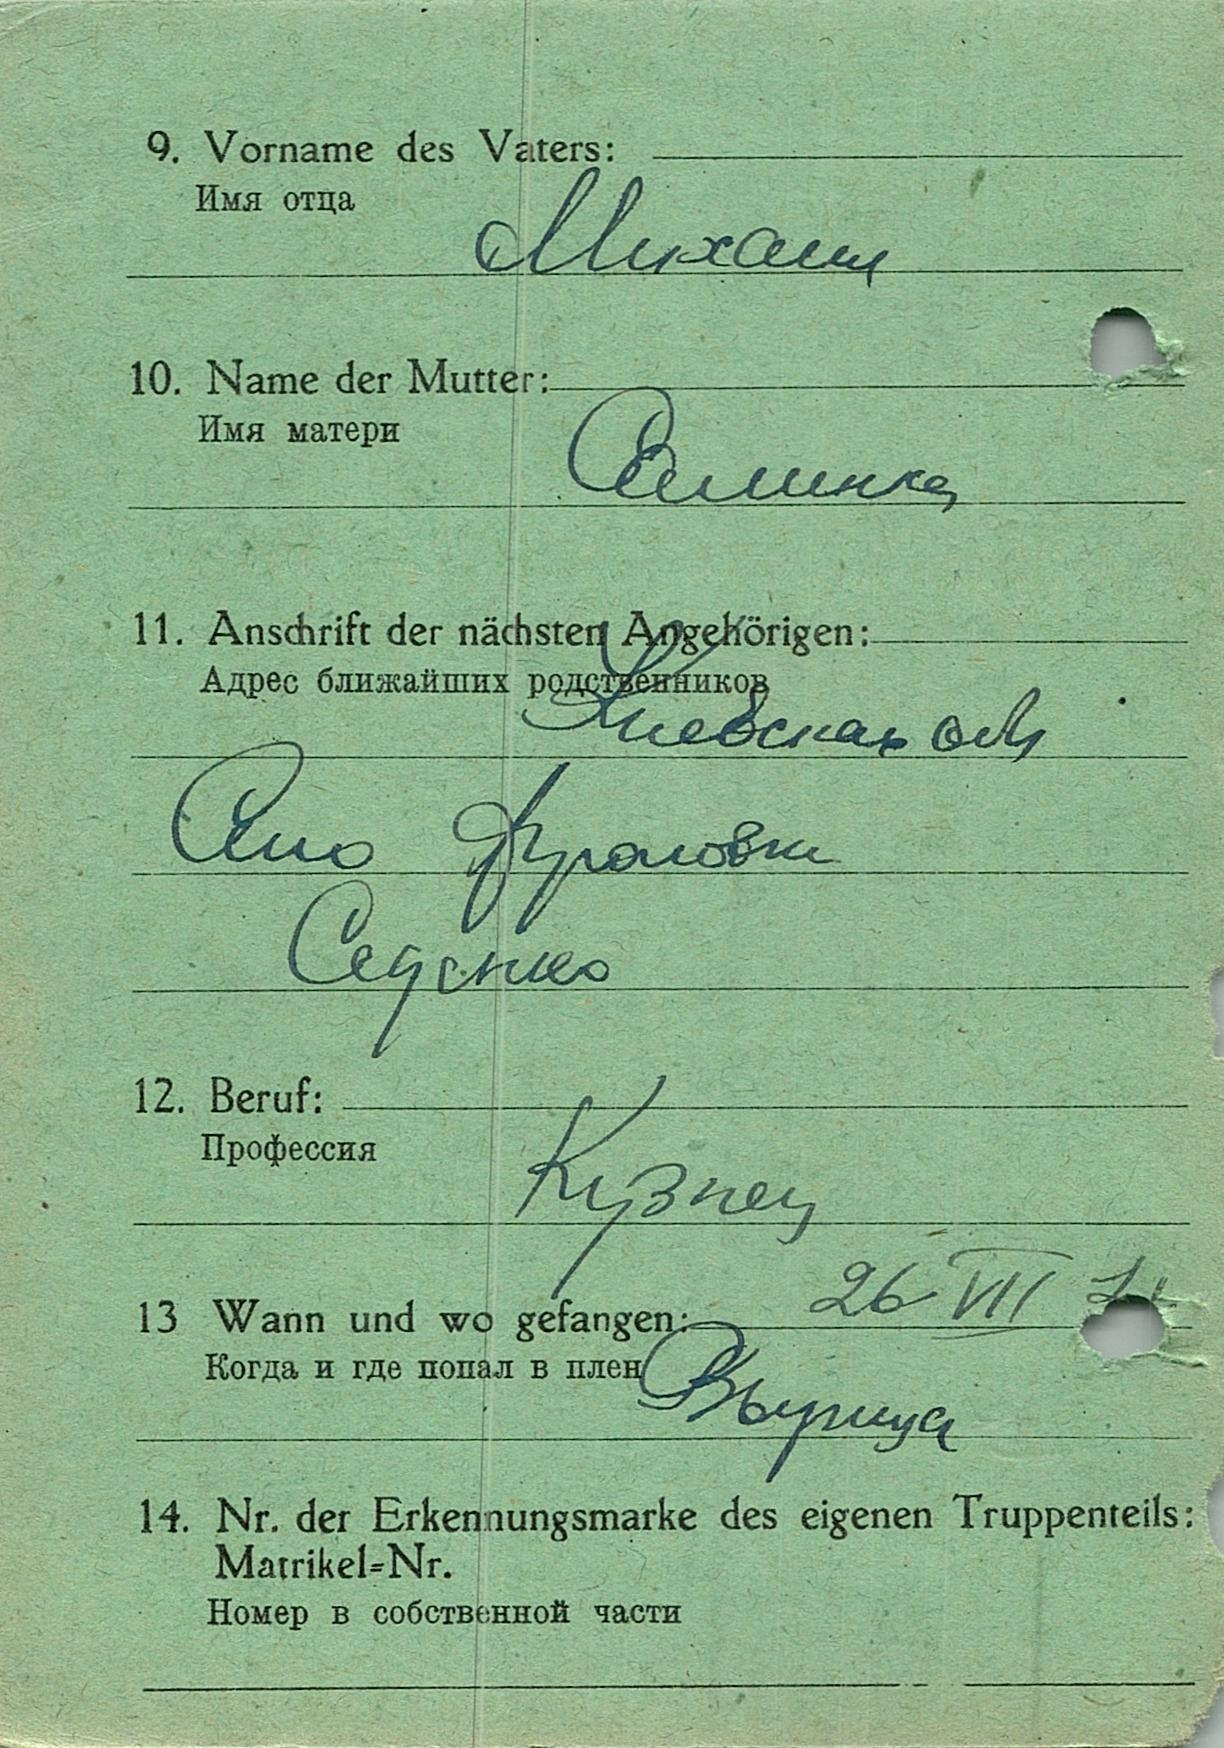 9. Vorname des Vaters:
Имя отца
Михаил
10. Name der Mutter:
Имя матери
11. Anschrift der nächsten Angehörigen:
Адрес ближайших родственников
Киевская обл
12. Beruf:
Профессия
Кузнец
26 VII
13 Wann und wo gefangen:
Когда и где попал в плен
Вырица
14. Nr. der Erkennungsmarke des eigenen Truppenteils:
Matrikel=Nr.
Номер в собственной части